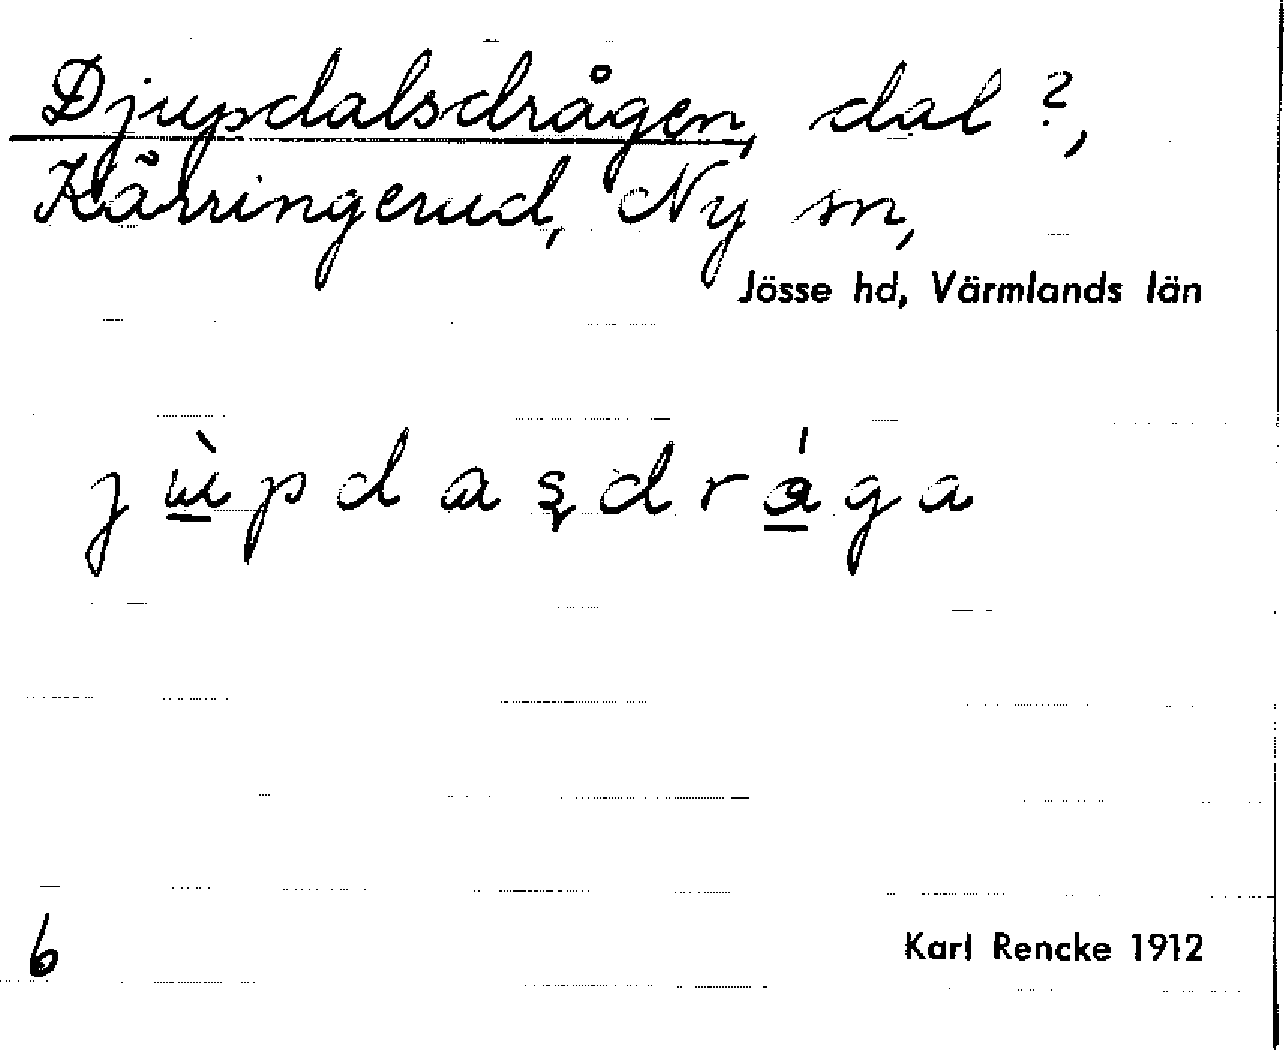 Djupdalsdrågen, dal ?,
Kärringerud, Ny sn,
Jösse hd, Värmlands län
jɯ̱̀pdaʂdrá̱ga
6
Karl Rencke 1912